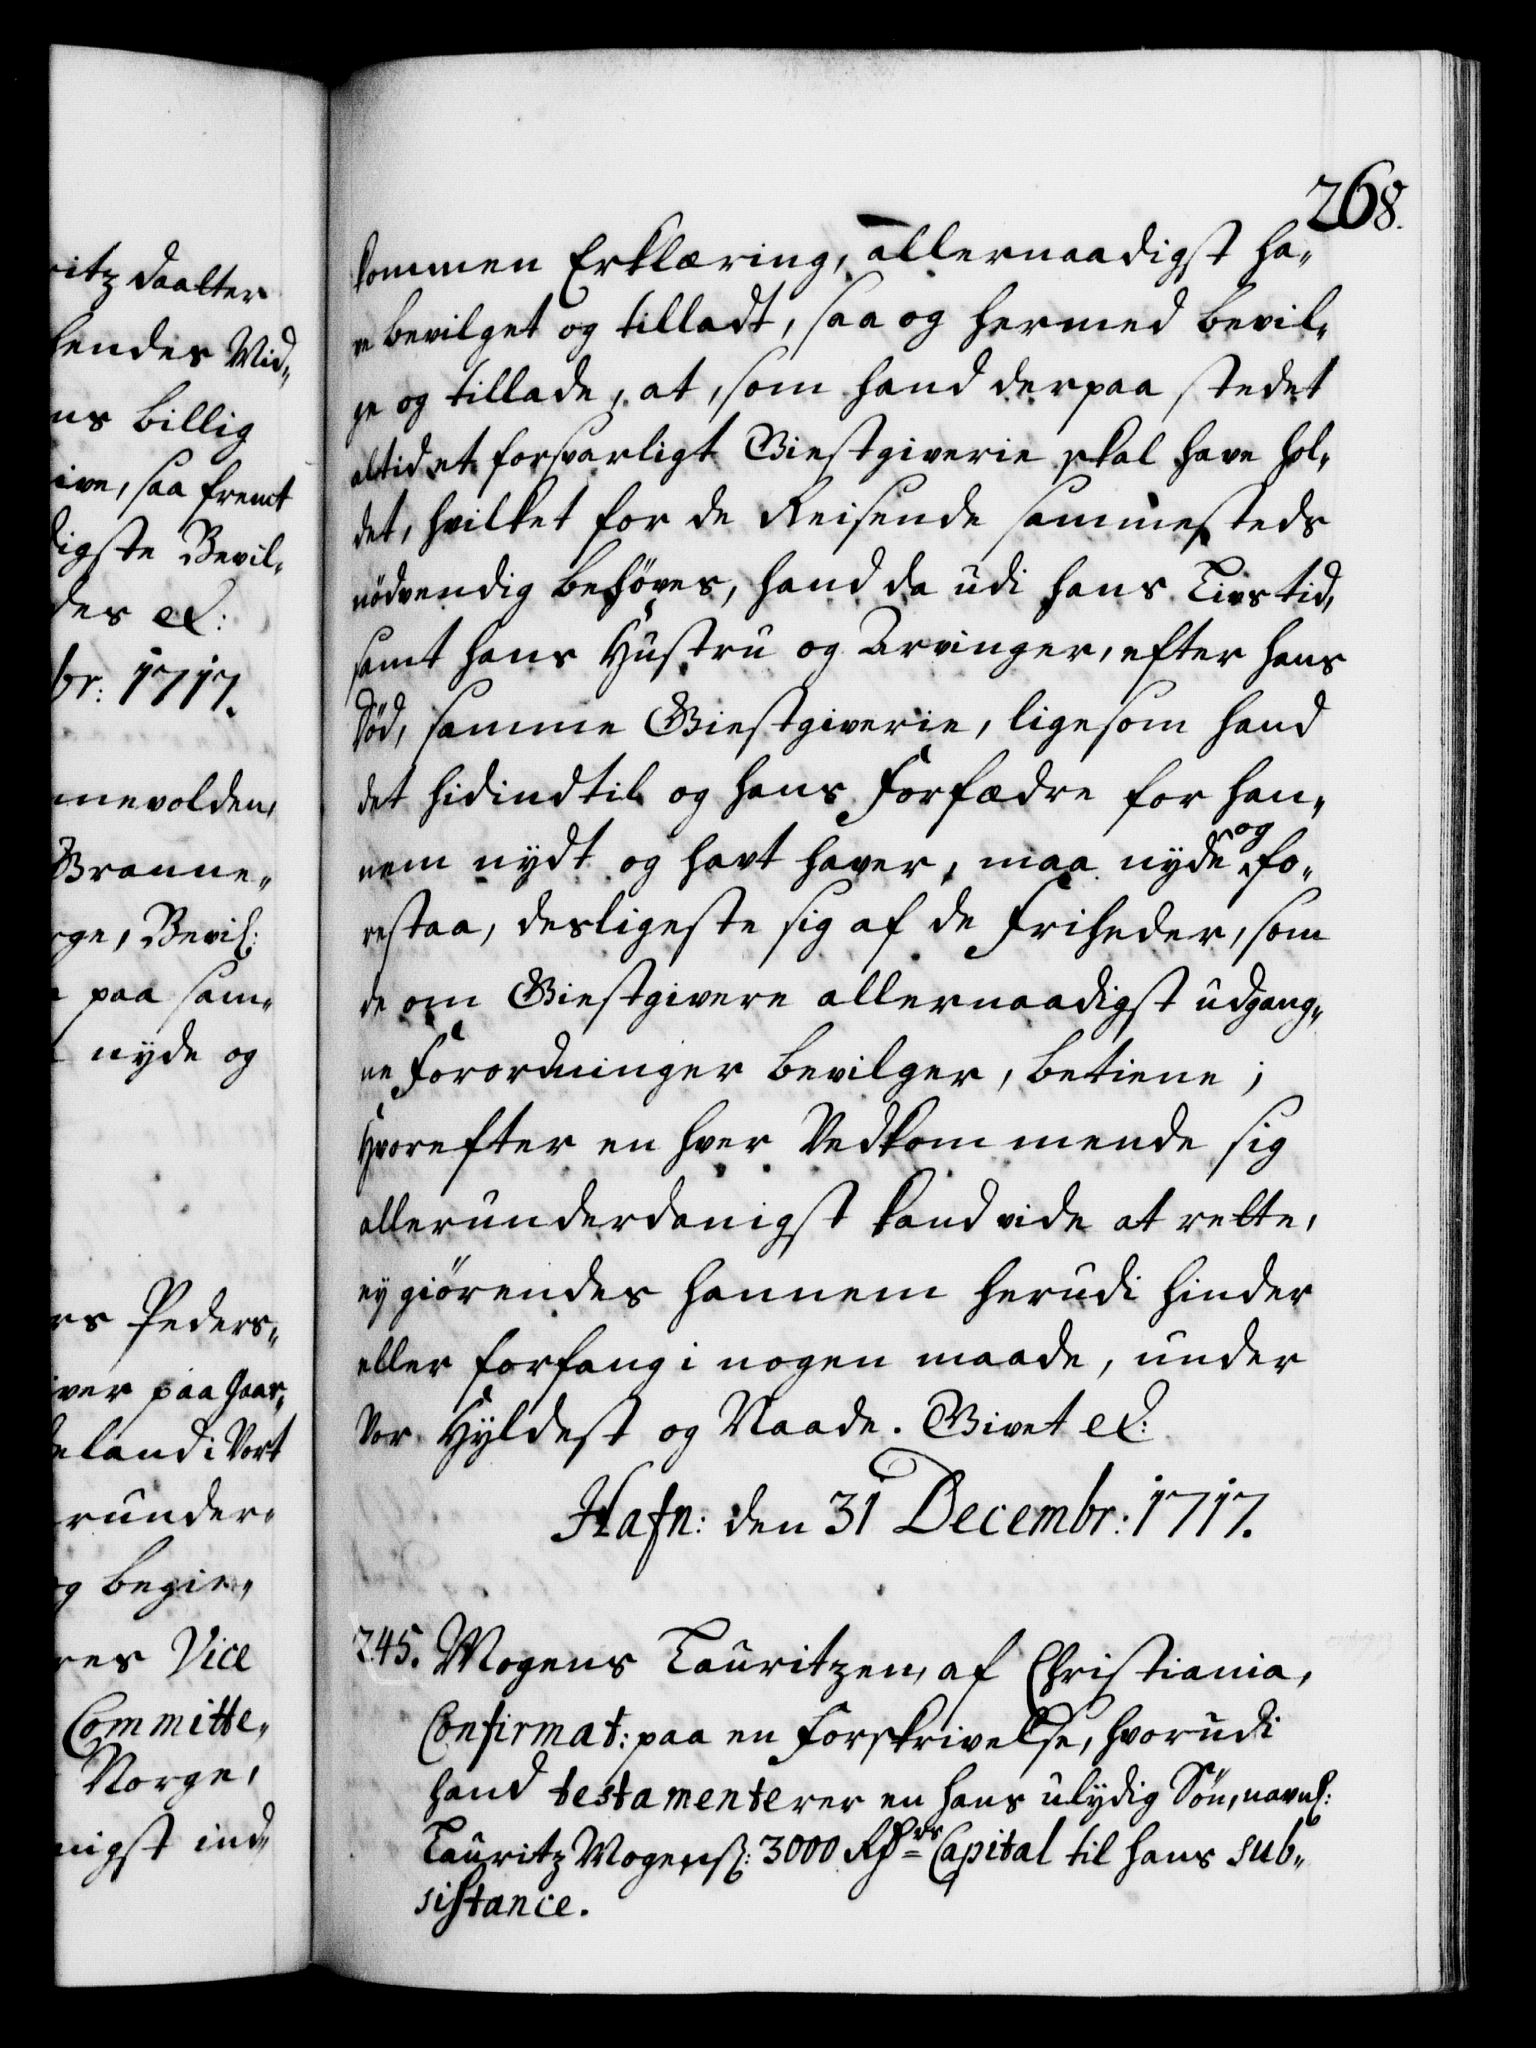 ritz daatter
hendes Mid„
ns billig
ive, saa fremt
digste Bevil„
des etc:
br: 1717.
mevolden,
Granne„
rge, Bevil:
paa sam„
nyde og
rs Peders„
iver paa Gaar„
eland i Vort
runder„
og begie„
res Vice
Committe„
Norge,
nigst ind„
268.
kommen Erklæring, allernaadigst ha„
ve bevilget og tilladt, saa og hermed bevil„
ge og tillade, at, som hand derpaa stedet
altid et forsvarligt Giestgiverie skal have hol„
det, hvilket for de Reisende sammesteds
nödvendig behöves, hand da udi hans Livs tid,
samt hans Hustru og Arvinger, efter hans
Död, samme Giestgiverie, ligesom hand
det hidindtil og hans Forfædre for han„
nem nydt og havt haver, maa nyde og fo„
restaa, desligeste sig af de Friheder, som
de om Giestgivere allernaadigst udgang„
ne Forordninger bevilger, betiene;
Hvorefter en hver Vedkommende sig
allerunderdanigst kand vide at rette,
ey giörendes hannem herudi hinder
eller forfang i nogen maade, under
Vor Hyldest og Naade. Givet etc:
Hafn: den 31 Decembr: 1717.
245. Mogens Lauritzen, af Christiania,
Confirmat: paa en Forskrivelse, hvorudi
hand testamenterer en hans ulydig Sön, navnl:
Lauritz Mogens: 3000 Rdrs Capital til hans sub„
sistance.